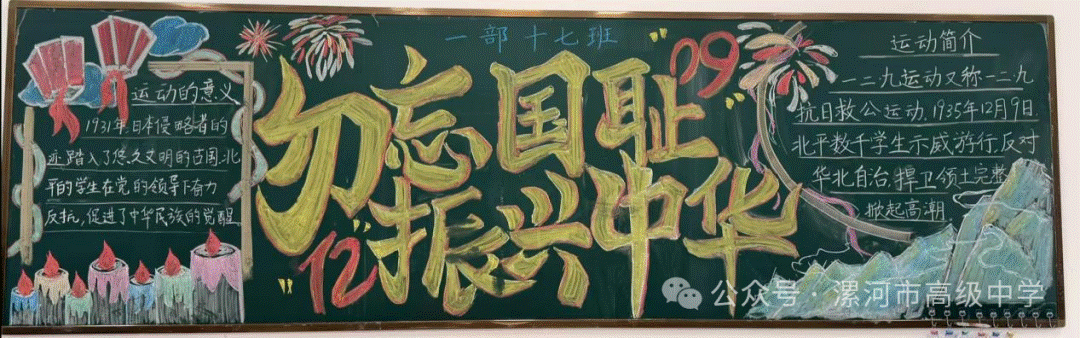 一部十七班
运动的意义
1931年,日本侵略者的
迹踏入了悠久文明的古国,北
平的学生在党的领导下奋力
反抗,促进了中华民族的觉醒。
勿忘国耻
振兴中华
12
09
运动简介
一二九运动又称一二九
抗日救公运动,1935年12月9日
北平数千学生示威游行,反对
华北自治,捍卫领土完整
掀起高潮
公众号·漯河市高级中学